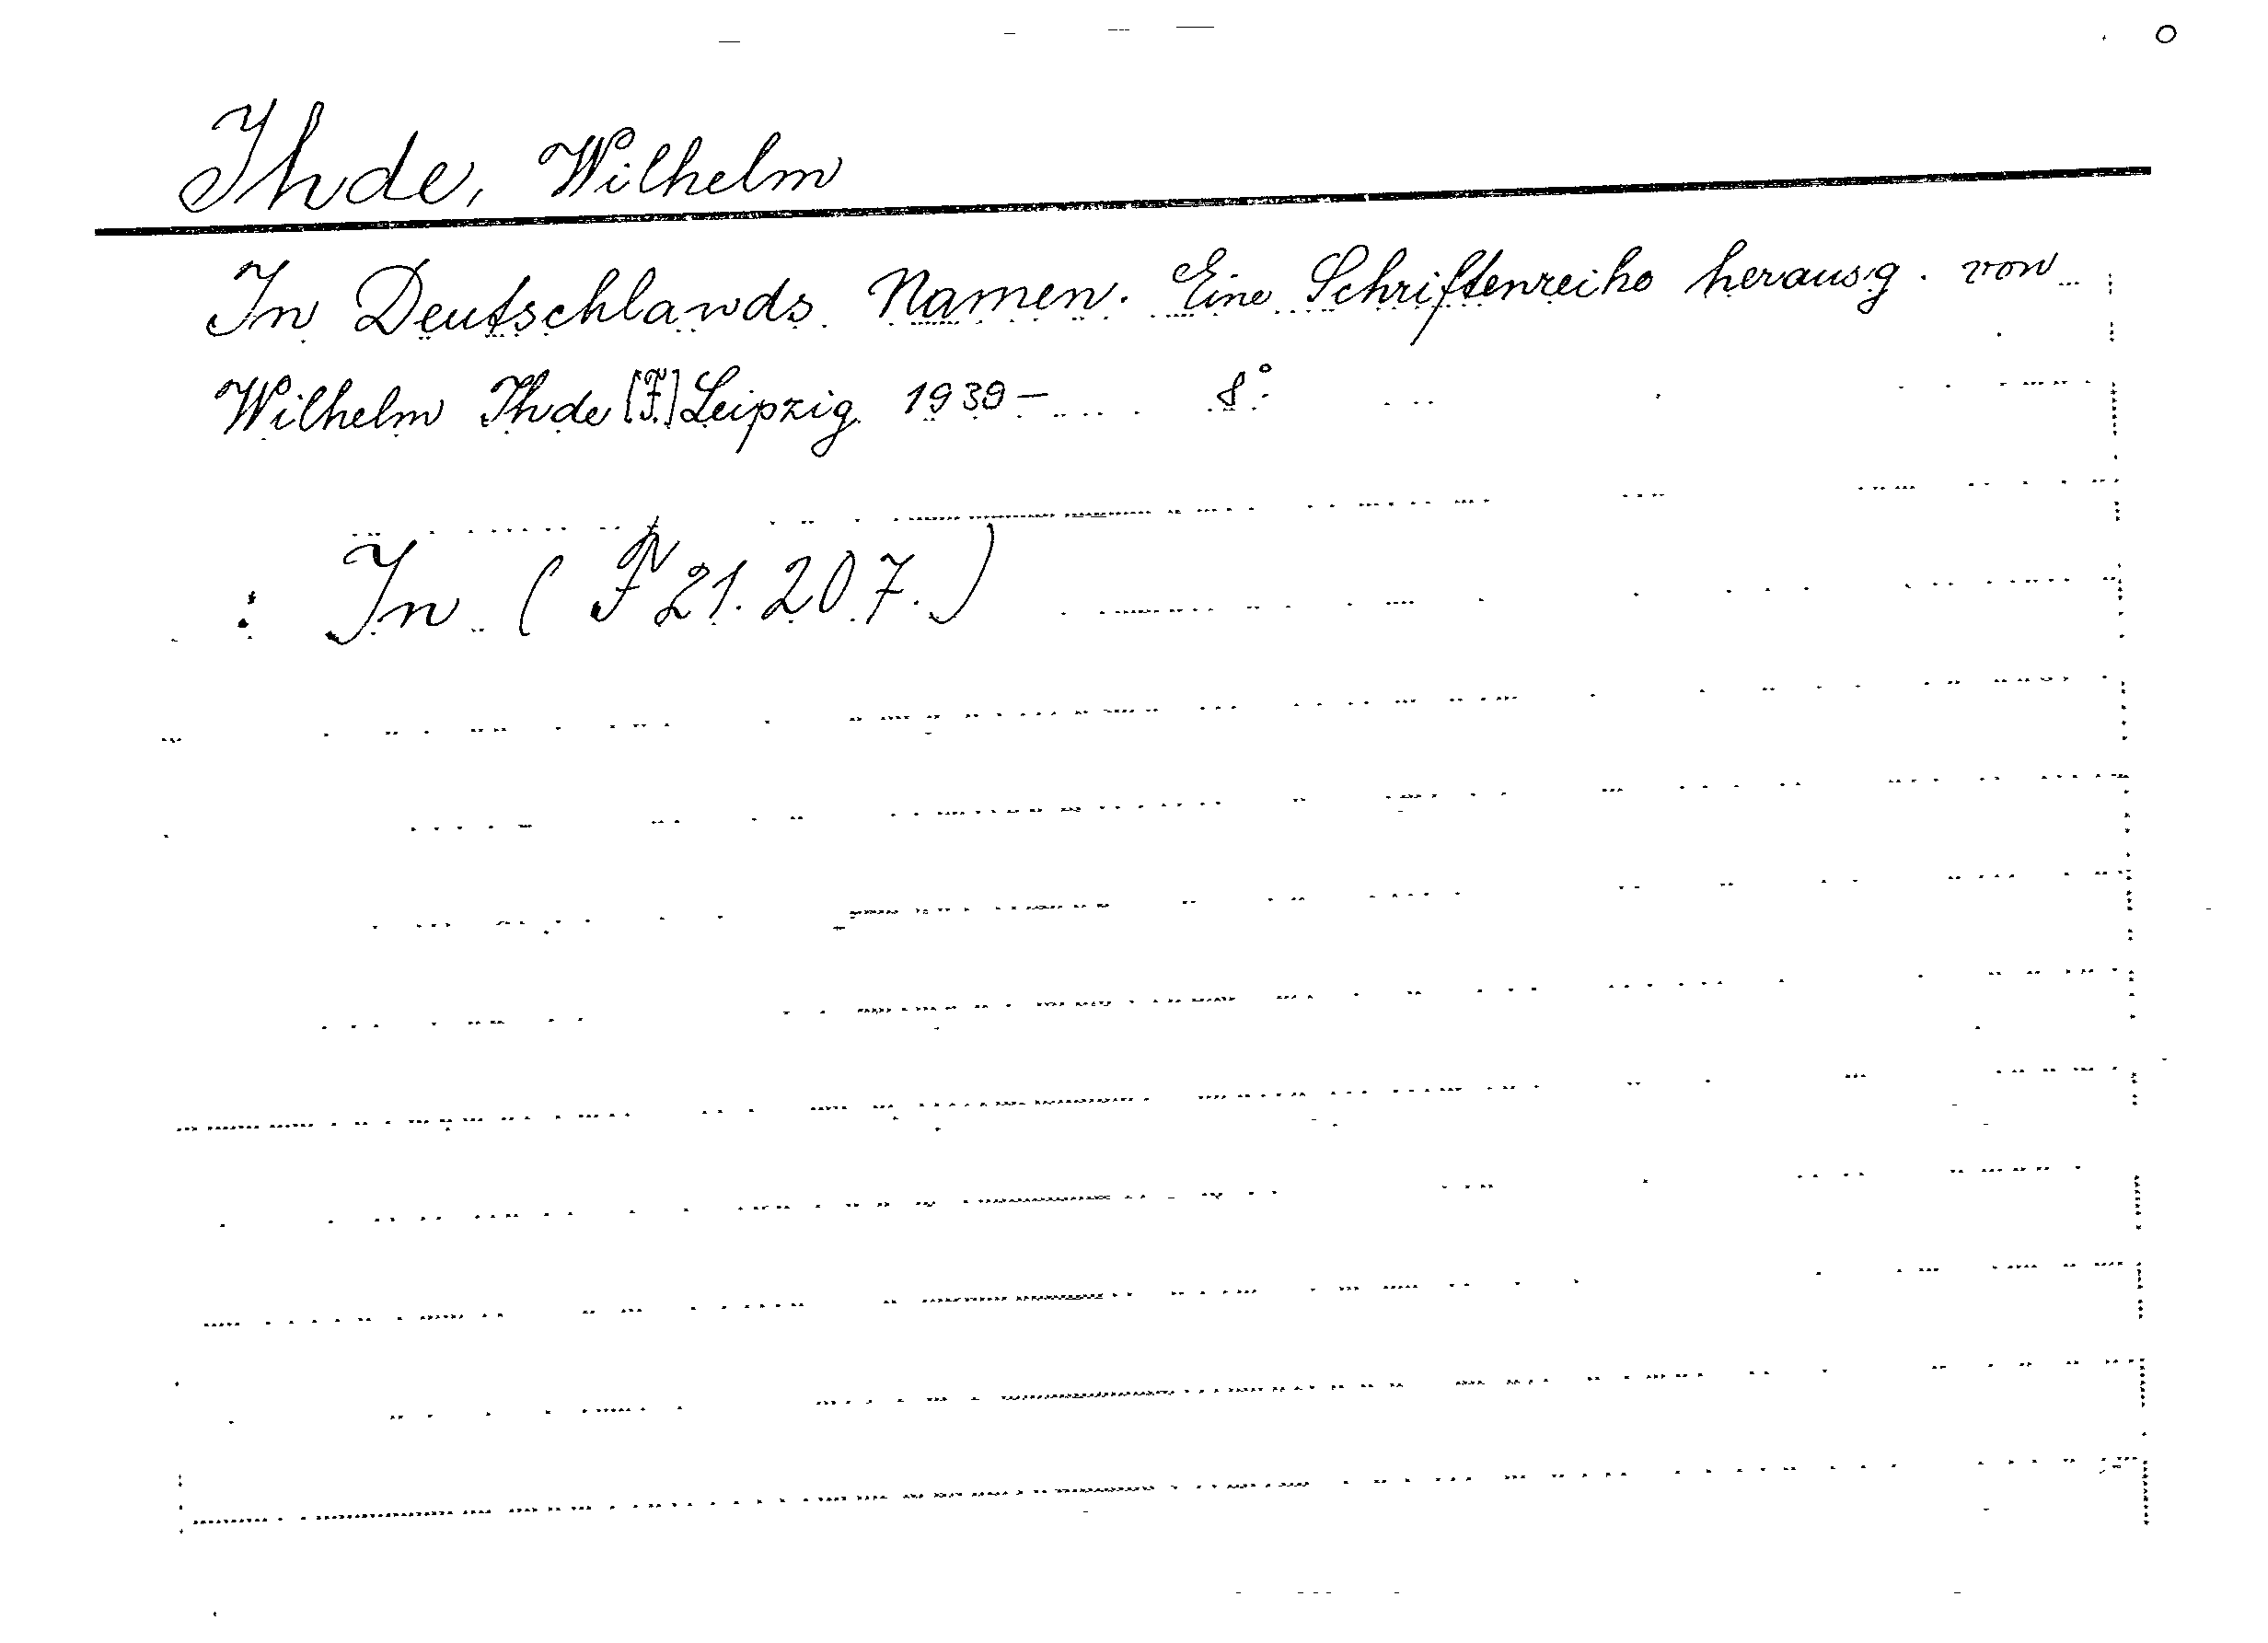 Ihde, Wilhelm
In Deutschlands Namen. Eine Schriftenreihe herausg. von
Wilhelm Ihde [F] Leipzig 1939– 8°
: In (F 21.207.)